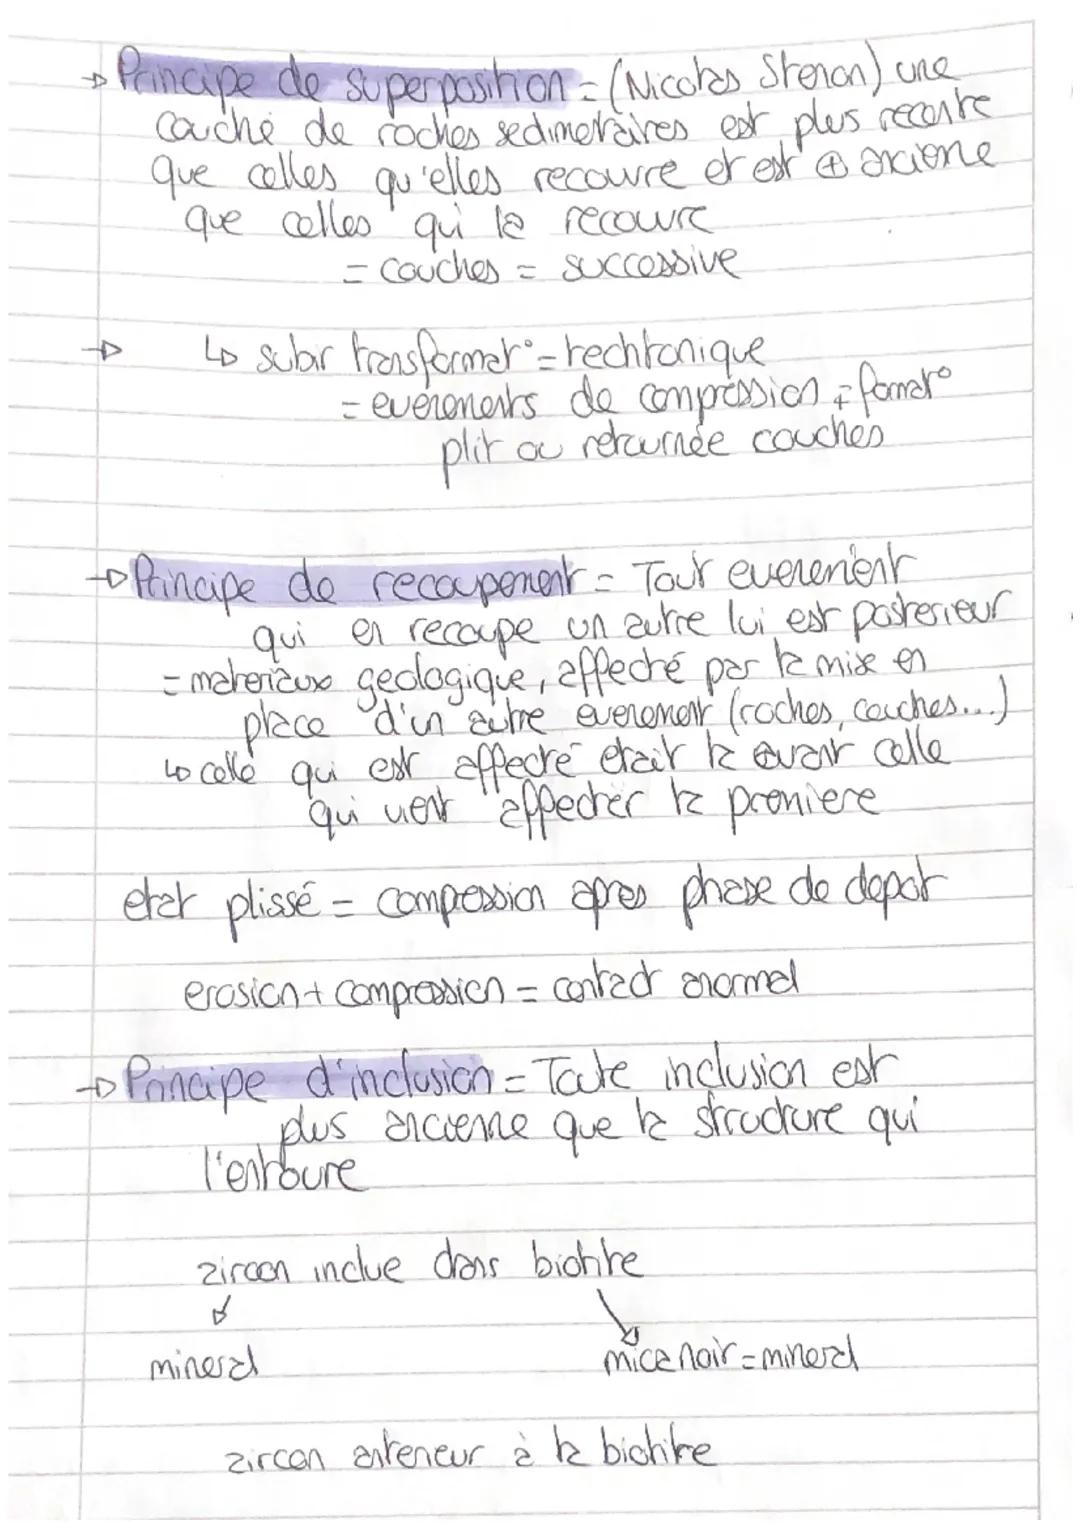 → Principe de superposition = (Nicolas Stenon) une
couche de roches sedimentaires est plus recente
que celles qu'elles recouvre et est ⊕ anciene
que celles qui la recouvre
= couches = successive
→ ↳ subir transformat° = techtonique
= evenements de compression = format°
plit ou retournée couches
→ Principe de recoupement = Tout evenement
qui en recoupe un autre lui est posterieur
= materiaux geologique, affecté par la mise en
place d'un autre evenement (roches, couches...)
↳ celle qui est affecté etait la avant celle
qui vient affecter la premiere
etat plissé = compession apres phase de depot
erosion + compression = contact anormal
→ Principe d'inclusion = Toute inclusion est
plus ancienne que la structure qui
l'entoure
zircon inclue dans biotite
mineral mica noir = mineral
zircon anterieur à la biotite